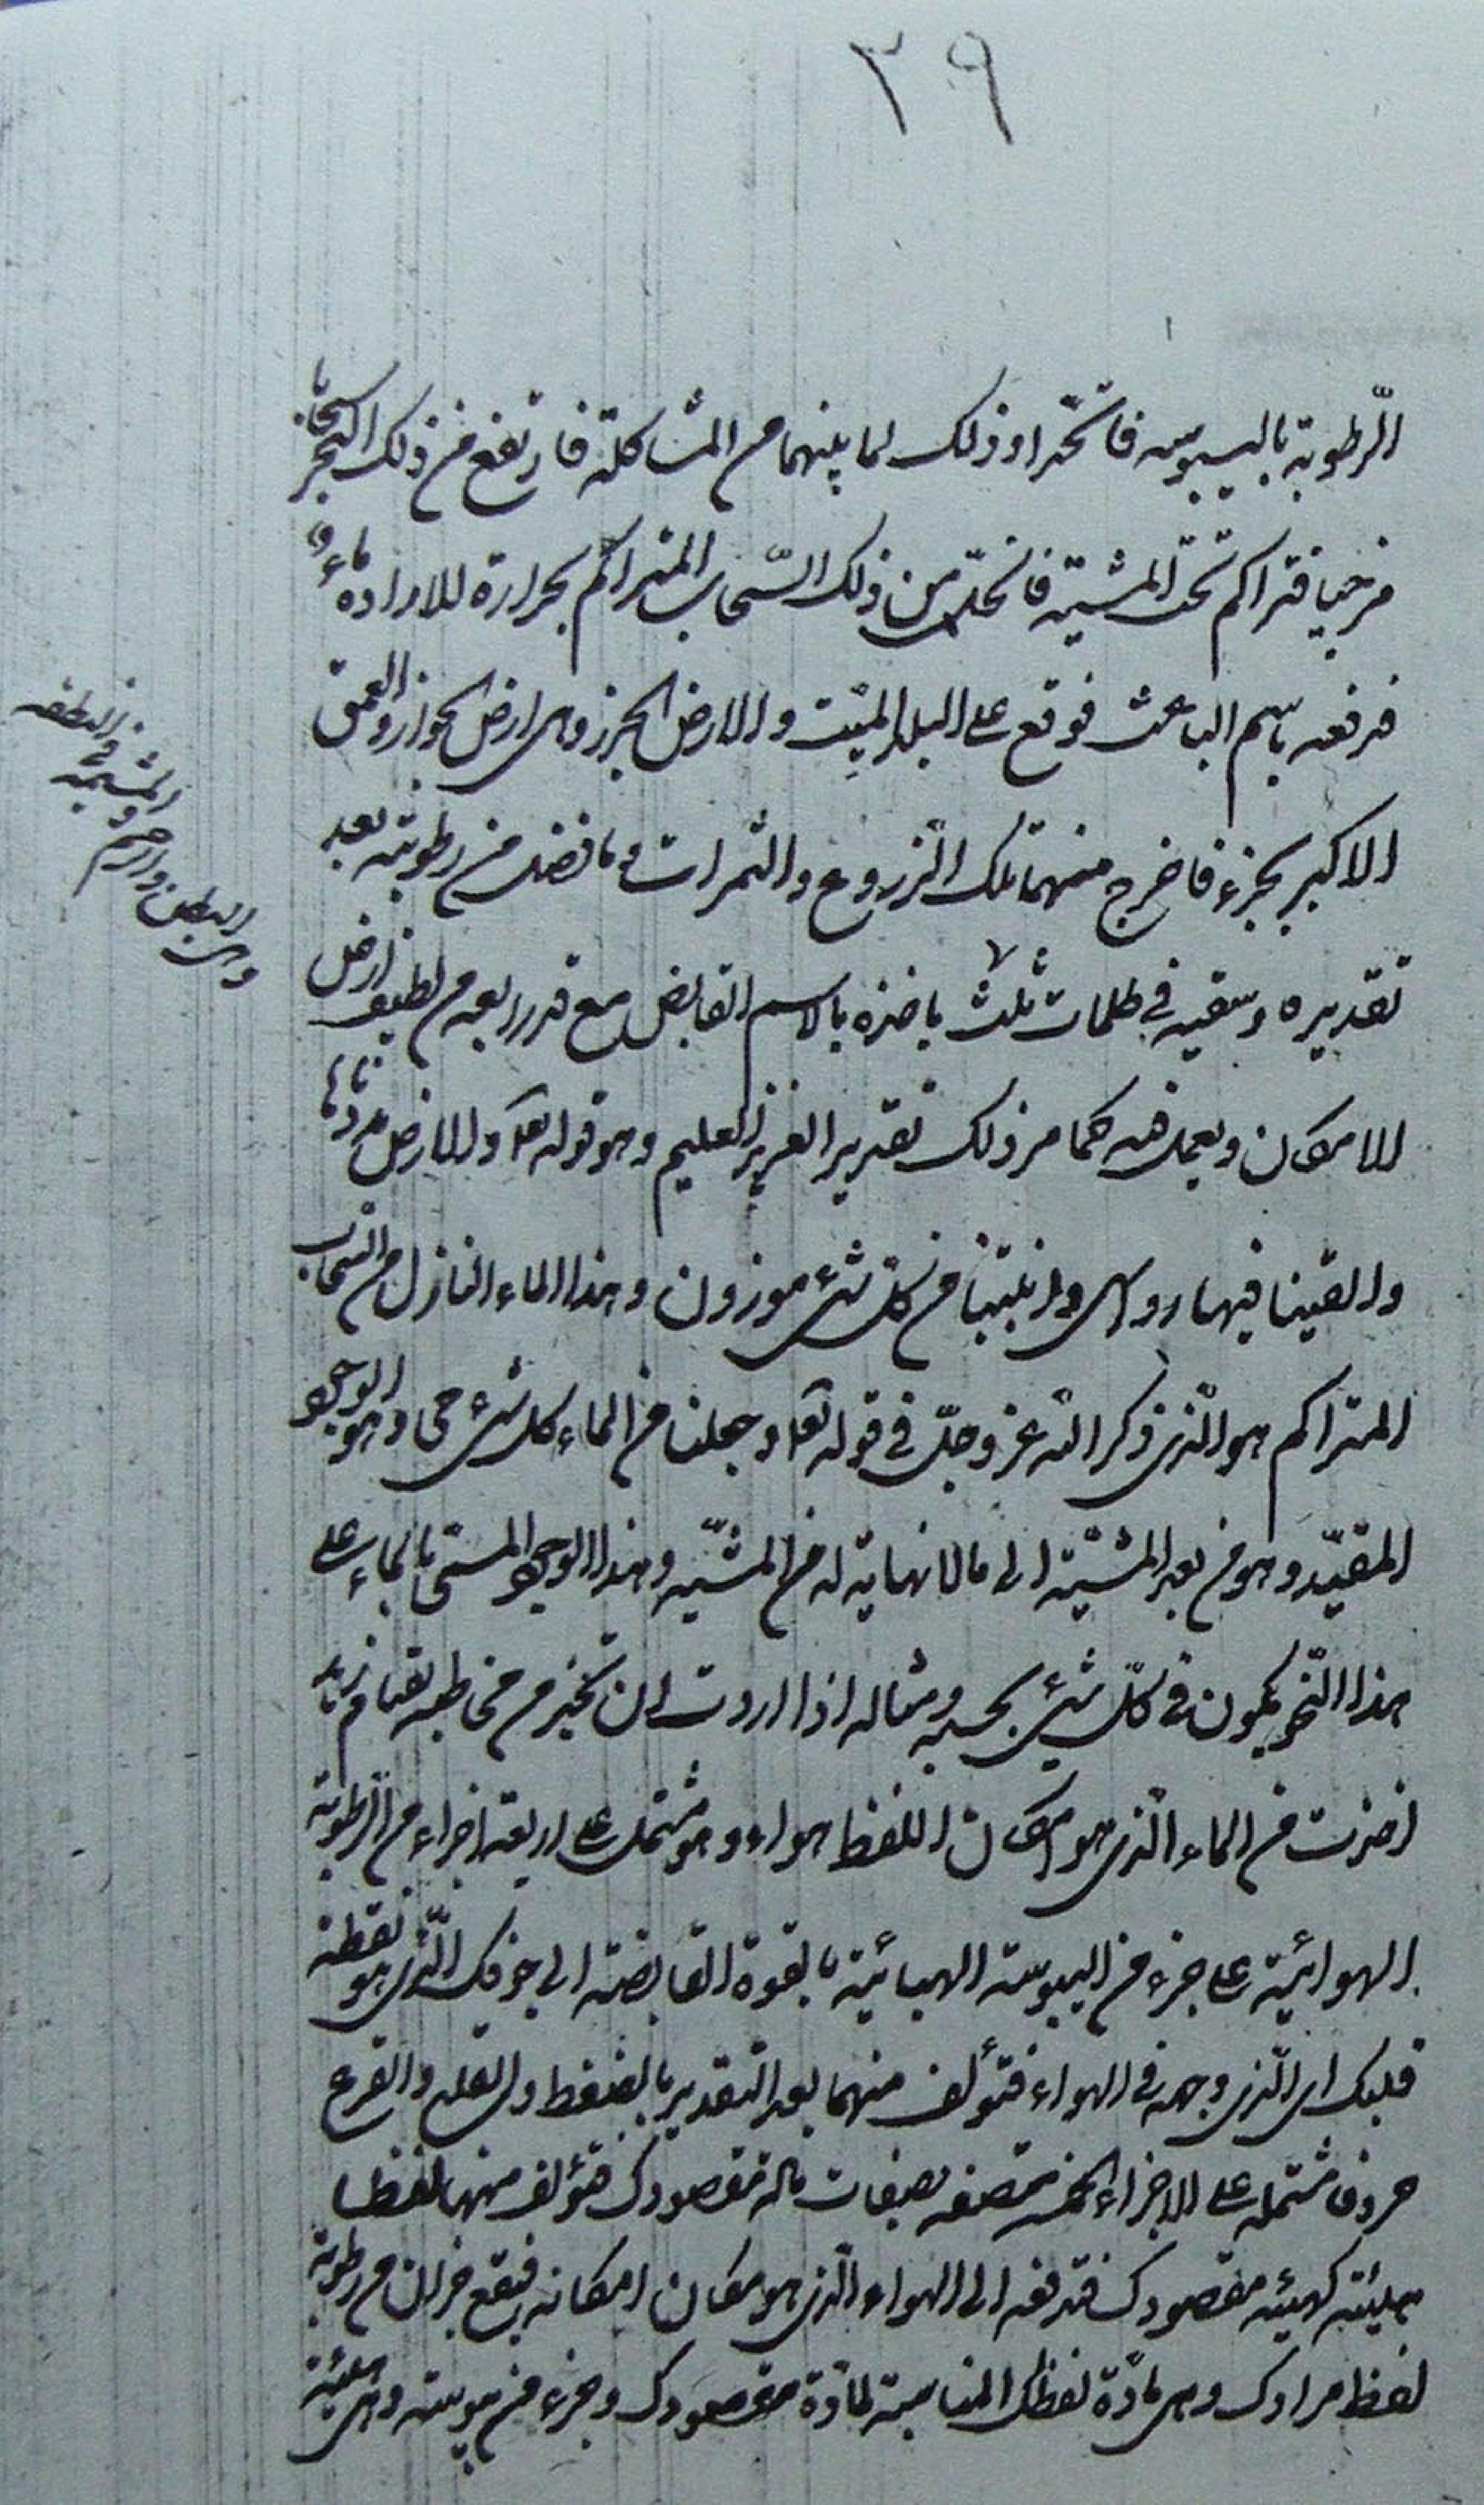 ٣٩
الرّطوبة باليبوسه فاتحّدا وذلك لما بينهما من المشاكلة فارتفع من ذلك البحر سحابا
مزجيا فتراكم تحت المشيّه فانحلّ من ذلك السّحاب المتراكم بحرارة الاراده ماء و
فرفعه باسم الباعث فوقع على البلد الميّت والارض الجرز وهى ارض الجواز والعمق
الاكبر بجزء فاخرج منهما تلك الزروع والثمرات وما فضل من رطوبته بعد
تقديره وسقيه فى ظلمات ثلث ياخذه بالاسم القابض مع قدر ربعه من لطيف ارض
الامكان ويعمل فيه كما مر ذلك تقدير العزيز العليم وهو قوله تعا والارض مددناها
والقينا فيها رواسى وانبتنا من كل شئ موزون وهذا الماء النازل من السّحاب
المتراكم هو الّذى ذكر الله عز وجلّ فى قوله تعا وجعلنا من الماء كل شئ حى وهو الوجود
المقيّد وهو من بعد المشيّة الى ما لا نهاية له من المشيّه وهذا الوجود المسمى بالماء على
هذا النّحو يكون فى كلّ شئ بحسبه ومثاله اذا اردت ان تخبر من تخاطبه بقيام زيد
اخذت من الماء الّذى هو امكان اللفظ هواء وهو مشتمل على اربعة اجزاء من الرّطوبة
الهوائية على جزء من اليبوسة الهبائية بالقوة القابضة الى جوفك الّذى هو نقطة
قلبك اى الّذى وجهه فى الهواء فتؤلف منهما بعد التقدير بالضغط والقلع والقرع
حروفا مشتمله على الاجزاء الخمسة متصفه بصفات مادة مقصودك فتؤلف منها لفظا
بهيئة كهيئه مقصودك فتدفعه الى الهواء الّذى هو مكان امكانه فيقع جزءان من رطوبة
لفظ مرادك وهى مادّة لفظك المناسبة لمادّة مقصودك وجزء من يبوسته وهى هيئة
وهى البطن والرحم والمشيمه فى النطفه